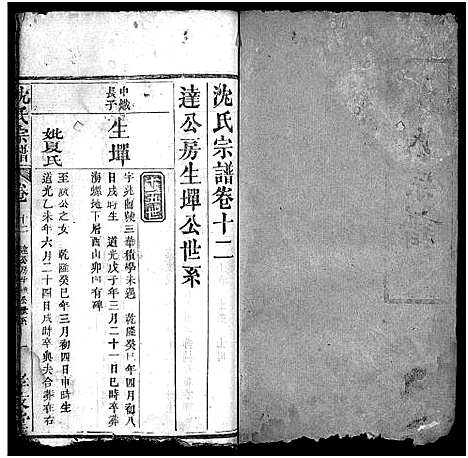 沈氏宗譜卷十二
達公房生墠公世系
十五世
中懺
長子
生墠
字兆
三華積學未遇 乾隆癸巳年四月初八
日戌時生 道光戊子年三月二十一日巳時卒葬
海螺地下眉酉山卯向有碑
妣夏氏
至
公之女 乾隆癸巳年三月初四日申時生
道光乙未年六月二十四日戌時卒與夫合葬在右
沈氏宗譜
卷十二